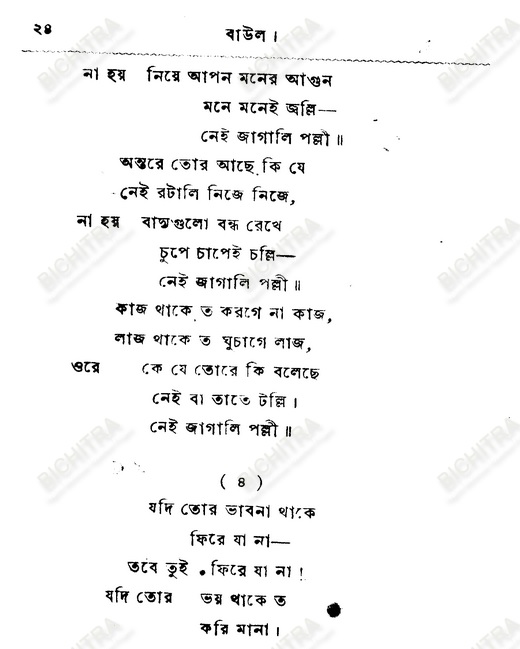 ২৪ বাউল।
না হয় নিয়ে আপন মনের আগুন
মনে মনেই জ্বল্লি—
নেই জাগালি পল্লী॥
অন্তরে তোর আছে কি যে
নেই রটালি নিজে নিজে,
না হয় বাদ্যগুলো বন্ধ রেখে
চুপে চাপেই চল্লি—
নেই জাগালি পল্লী॥
কাজ থাকে ত করগে না কাজ,
লাজ থাকে ত ঘুচাগে লাজ,
ওরে কে যে তোরে কি বলেছে
নেই বা তাতে টল্লি।
নেই জাগালি পল্লী॥
( ৪ )
যদি তোর ভাবনা থাকে
ফিরে যা না—
তবে তুই ফিরে যা না!
যদি তোর ভয় থাকে ত
করি মানা।
BICHITRA